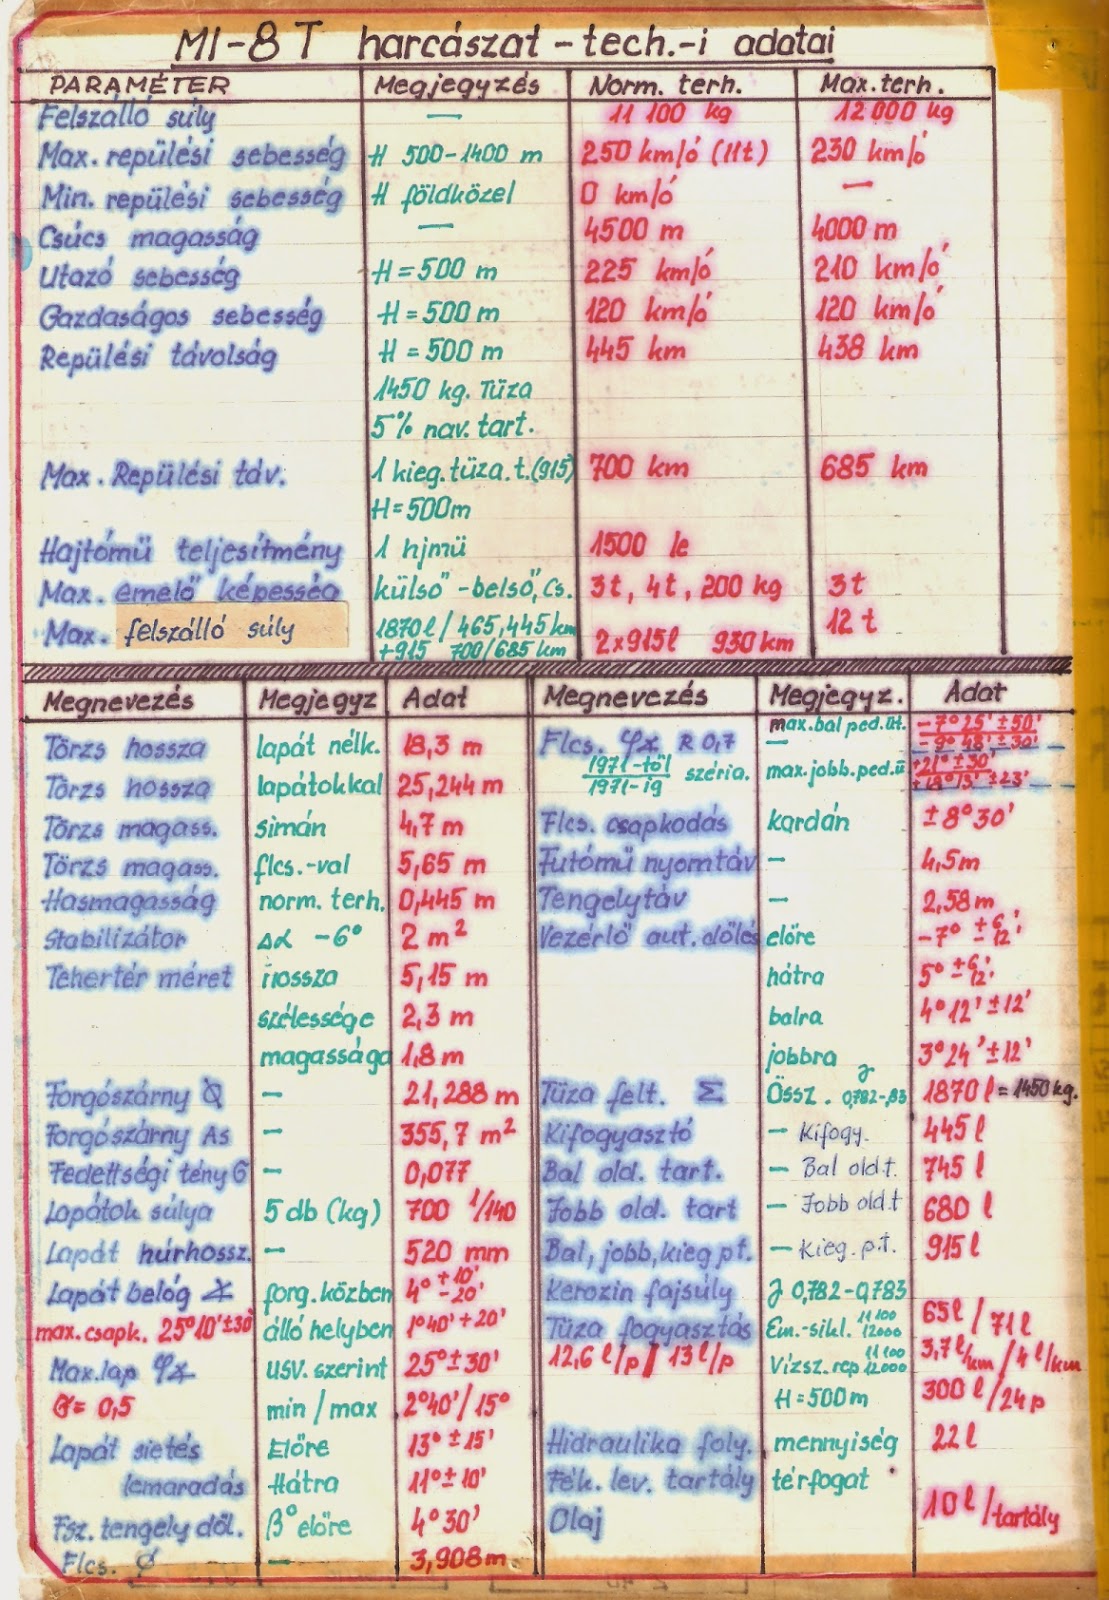 MI-8T harcászat-tech.-i adatai
PARAMÉTER Megjegyzés Norm. terh. Max. terh.
Felszálló súly — 11 100 kg 12 000 kg
Max. repülési sebesség H 500-1400 m 250 km/ó (11t) 230 km/ó
Min. repülési sebesség H földközel 0 km/ó —
Csúcs magasság — 4500 m 4000 m
Utazó sebesség H = 500 m 225 km/ó 210 km/ó
Gazdaságos sebesség H = 500 m 120 km/ó 120 km/ó
Repülési távolság H = 500 m 445 km 438 km
1450 kg. Tüza
5% nav. tart.
Max. Repülési táv. 1 kieg. tüza. t. (915) 700 km 685 km
H = 500 m
Hajtómü teljesítmény 1 hjmü 1500 le
Max. emelő képesség külső-belső, Cs. 3t, 4t, 200 kg 3t
Max. felszálló súly 1870 l / 465,445 km 12 t
+915 700/685 km 2x915 l 930 km
Megnevezés Megjegyz Adat
Törzs hossza lapát nélk. 18,3 m
Törzs hossza lapátokkal 25,244 m
Törzs magass. simán 4,7 m
Törzs magass. flcs.-val 5,65 m
Hasmagasság norm. terh. 0,445 m
Stabilizátor Δα -6° 2 m²
Tehertér méret hossza 5,15 m
szélessége 2,3 m
magassága 1,8 m
Forgószárny Ø — 21,288 m
Forgószárny As — 355,7 m²
Fedettségi tény G — 0,077
Lapátok súlya 5 db (kg) 700 1/140
Lapát húrhossz. — 520 mm
Lapát belóg ∡ forg. közben 4° +10' -20'
max. csapk. 25°10' ±30' álló helyben 1°40' +20'
Max. lap φ∡ usv. szerint 25° ±30'
= 0,5 min / max 2°40' / 15°
Lapát sietés Előre 13° ±15'
lemaradás Hátra 11° ±10'
Fsz. tengely dől. β° előre 4°30'
Flcs. Ø — 3,908 m
Megnevezés Megjegyz. Adat
Flcs. φ∡ R 0,7 max. bal ped. üt. -7° 25' ±50'
— -9° 48' ±30'
1971-től szeria. max. jobb. ped. ü +21° ±30'
1971-ig ±23'
Flcs. csapkodás kardán ±8°30'
Futómű nyomtáv — 4,5 m
Tengelytáv — 2,58 m
Vezérlő aut. dőlés előre -7° +6' -12'
hátra 5° +6' -12'
balra 4°12' ±12'
jobbra 3°24' ±12'
Tüza felt. Σ Össz. γ 0,782-,83 1870 l = 1450 kg.
Kifogyasztó — Kifogy. 445 l
Bal old. tart. — Bal old.t. 745 l
Jobb old. tart — Jobb old.t 680 l
Bal, jobb, kieg p.t. — Kieg. p.t. 915 l
Kerozin fajsúly γ 0,782-0,783
Tüza fogyasztás Em.-sikl. 11 100 12000 65 l / 71 l
12,6 l/p // 13 l/p Vízsz. rep. 11 100 12000 3,7 l/km / 4 l/km
H = 500 m 300 l / 24 p
Hidraulika foly. mennyiség 22 l
Fék. lev. tartály térfogat
Olaj 10 l / tartály